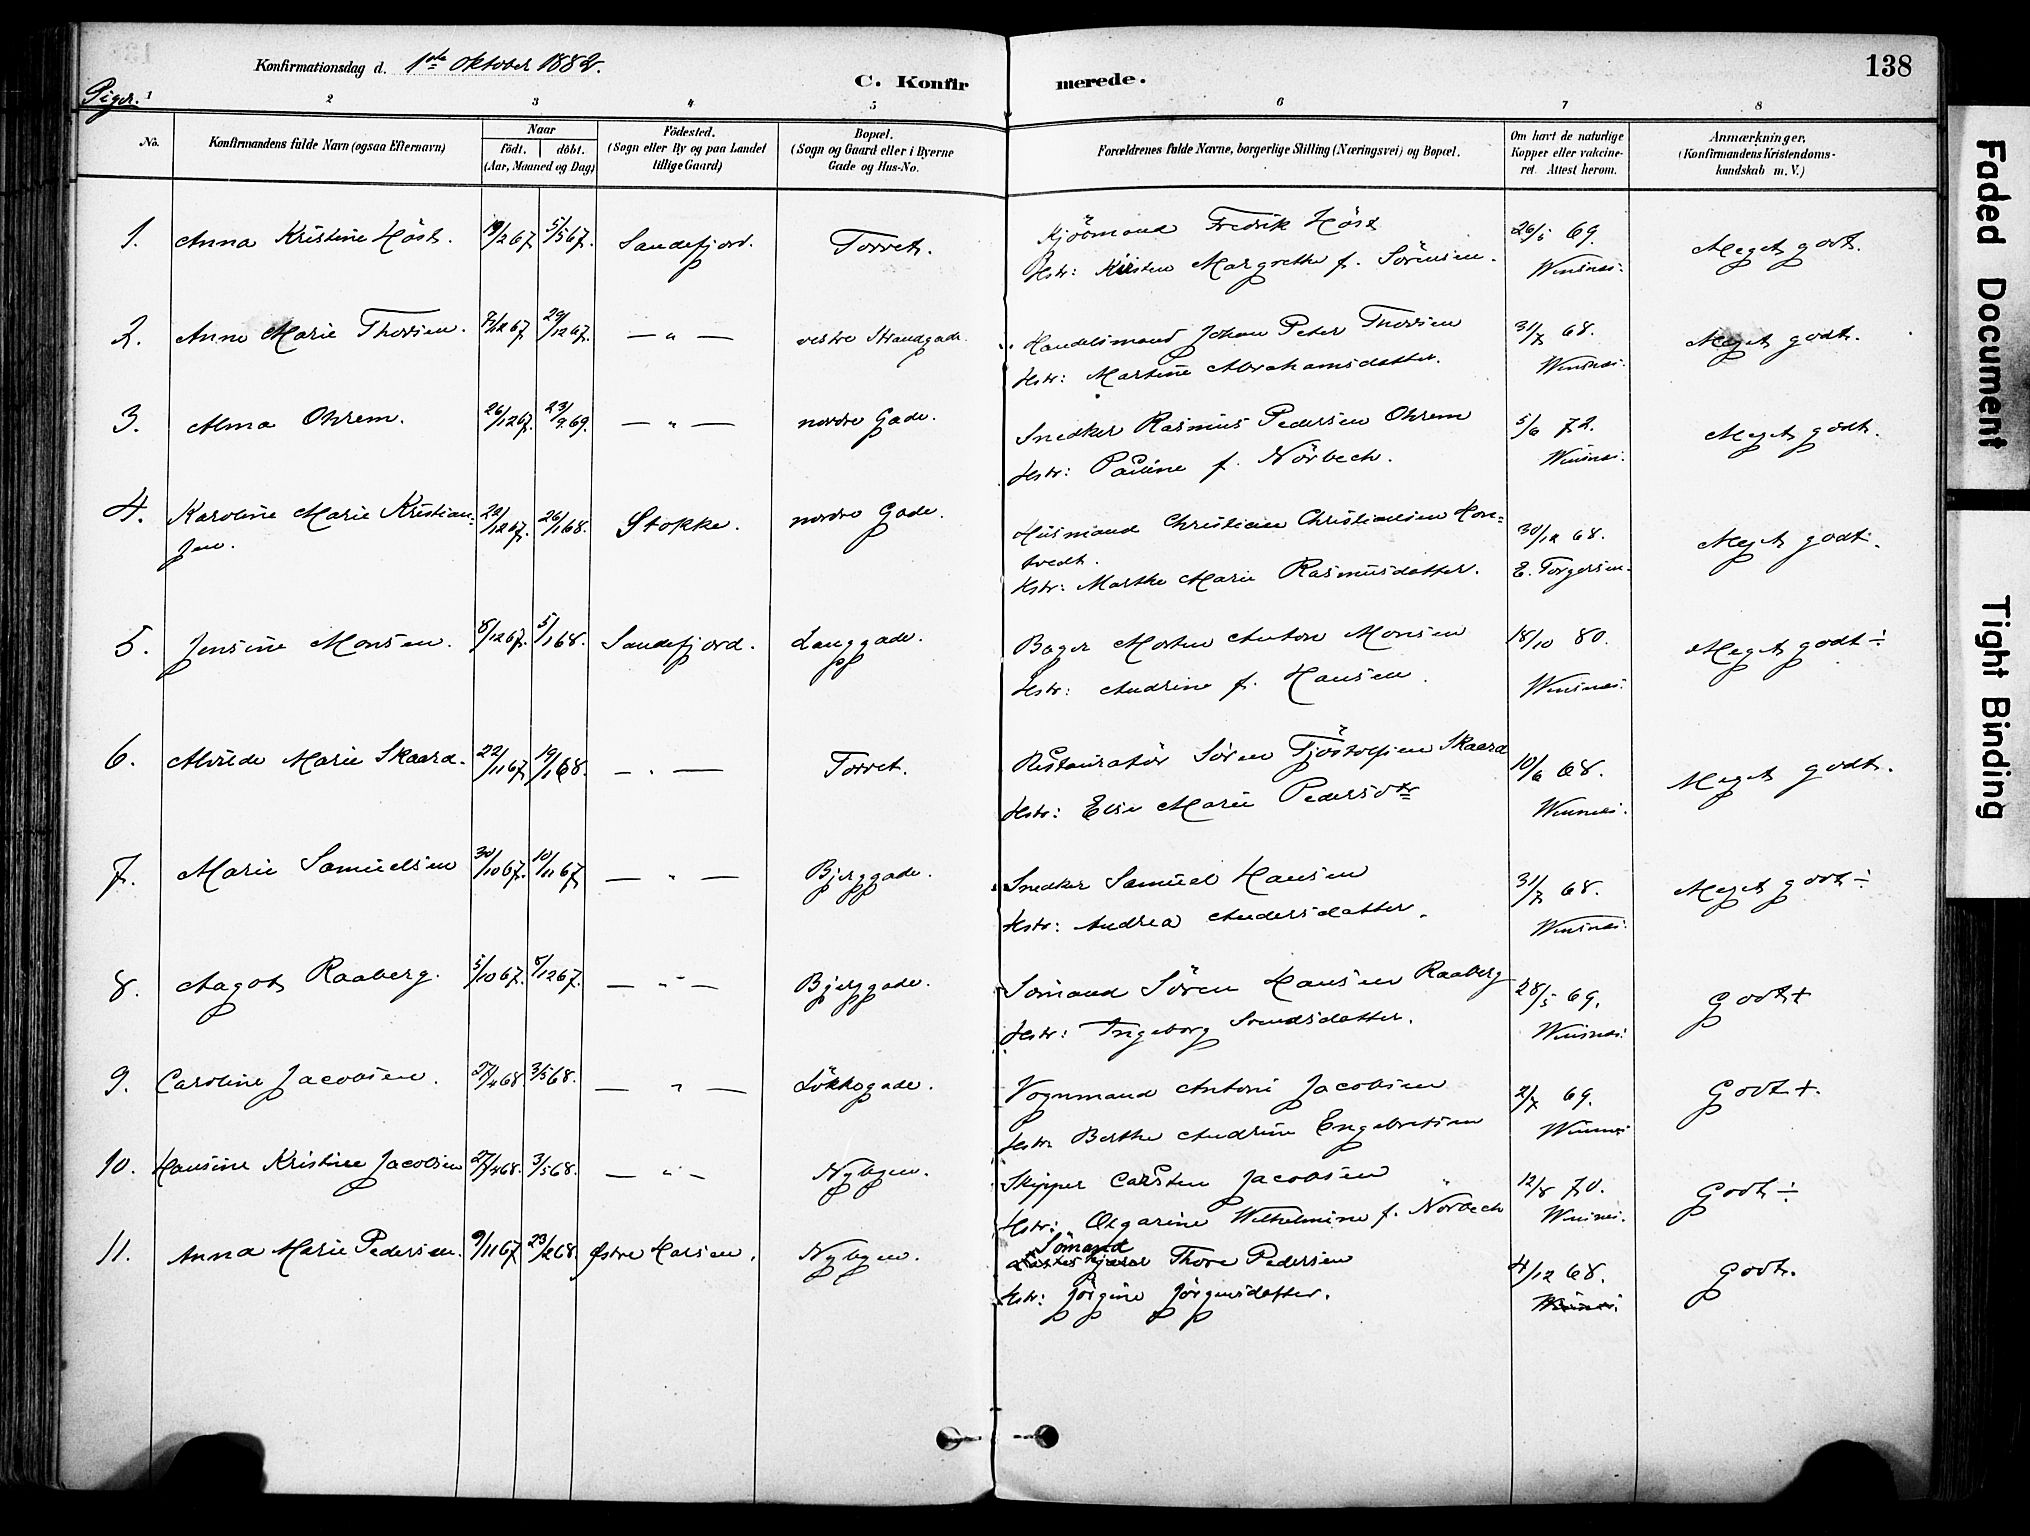 138
Konfirmationsdag d. 1ste Oktober 1882.
C. Konfirmerede.
Piger.
1 2 3 4 5 6 7 8
No.
Konfirmandens fulde Navn (ogsaa Efternavn)
Naar
födt. döbt.
(Aar, Maaned og Dag)
Födested.
(Sogn eller By og paa Landet
tillige Gaard)
Bopæl.
(Sogn og Gaard eller i Byerne
Gade og Hus-No.
Forældrenes fulde Navne, borgerlige Stilling (Næringsvei) og Bopæl.
Om havt de naturlige
Kopper eller vakcine-
ret. Attest herom.
Anmærkninger,
(Konfirmandens Kristendoms-
kundskab m. V.)
1. Anna Kristine Höst. 19/2 67 5/5 67. Sandefjord. Torvet. Kjöbmand Fredrik Höst 26/5 69. Meget godt.
Hstr: Kirsten Margrethe f. Sörensen. Winsnes.
2. Anne Marie Thorsen. 7/12 67 29/12 67. — " — vestre Strandgade. Handelsmand Johan Peter Thorsen 31/7 68. Meget godt.
Hstr: Martine Abrahamsdatter. Winsnes.
3. Alma Ohrem. 26/12 67. 23/9 69. — " — nordre Gade. Snedker Rasmus Pedersen Ohrem 5/6 72. Meget godt.
Hstr: Pauline f. Nörbech. Winsnes.
4. Karoline Marie Kristian- 22/12 67. 26/1 68. Stokke. nordre Gade. Husmand Christian Christiansen Hon-
sen. tvedt. 30/12 68. Meget godt.
Hstr: Marthe Marie Rasmusdatter. E. Torgersen.
5. Jensine Monsen. 8/12 67. 5/1 68. Sandefjord. Langgade. Bager Morten Anton Monsen 18/10 80. Meget godt ÷
Hstr: Andrine f. Hansen. Winsnes.
6. Alvilde Marie Skaara. 22/11 67 19/1 68. — " — Torvet. Restauratör Sören Tjöstolfsen Skaara 10/6 68. Meget godt.
Hstr: Else Marie Pedersdtr Winsnes.
7. Marie Samuelsen 30/10 67. 10/11 67. — " — Bjerggade. Snedker Samuel Hansen 31/7 68. Meget godt ÷
Hstr: Andrea Andersdatter. Winsnes.
8. Aagot Raaberg. 5/10 67. 8/12 67. — " — Bjerggade. Sömand Sören Hansen Raaberg 28/5 69. Godt +
Hstr: Ingeborg Svendsdatter. Winsnes.
9. Caroline Jacobsen. 27/4 68 3/5 68. — " — Lökkegade. Vognmand Antoni Jacobsen 2/7 69. Godt +.
Hstr Berthe Andrine Engebretsen Winsnes
10. Hansine Kristine Jacobsen 27/4 68. 3/5 68. — " — Nybyen. Skipper Carsten Jacobsen 12/8 70. Godt ÷
Hstr: Olgarine Wilhelmine f. Nörbech Winsnes.
11. Anna Marie Pedersen. 9/11 67 23/2 68. Østre Halsen. Nybyen. Sömand
Thore Pedersen 4/12 68. Godt.
Hstr: Jörgine Jörgensdatter.
Faded Document
Tight Binding